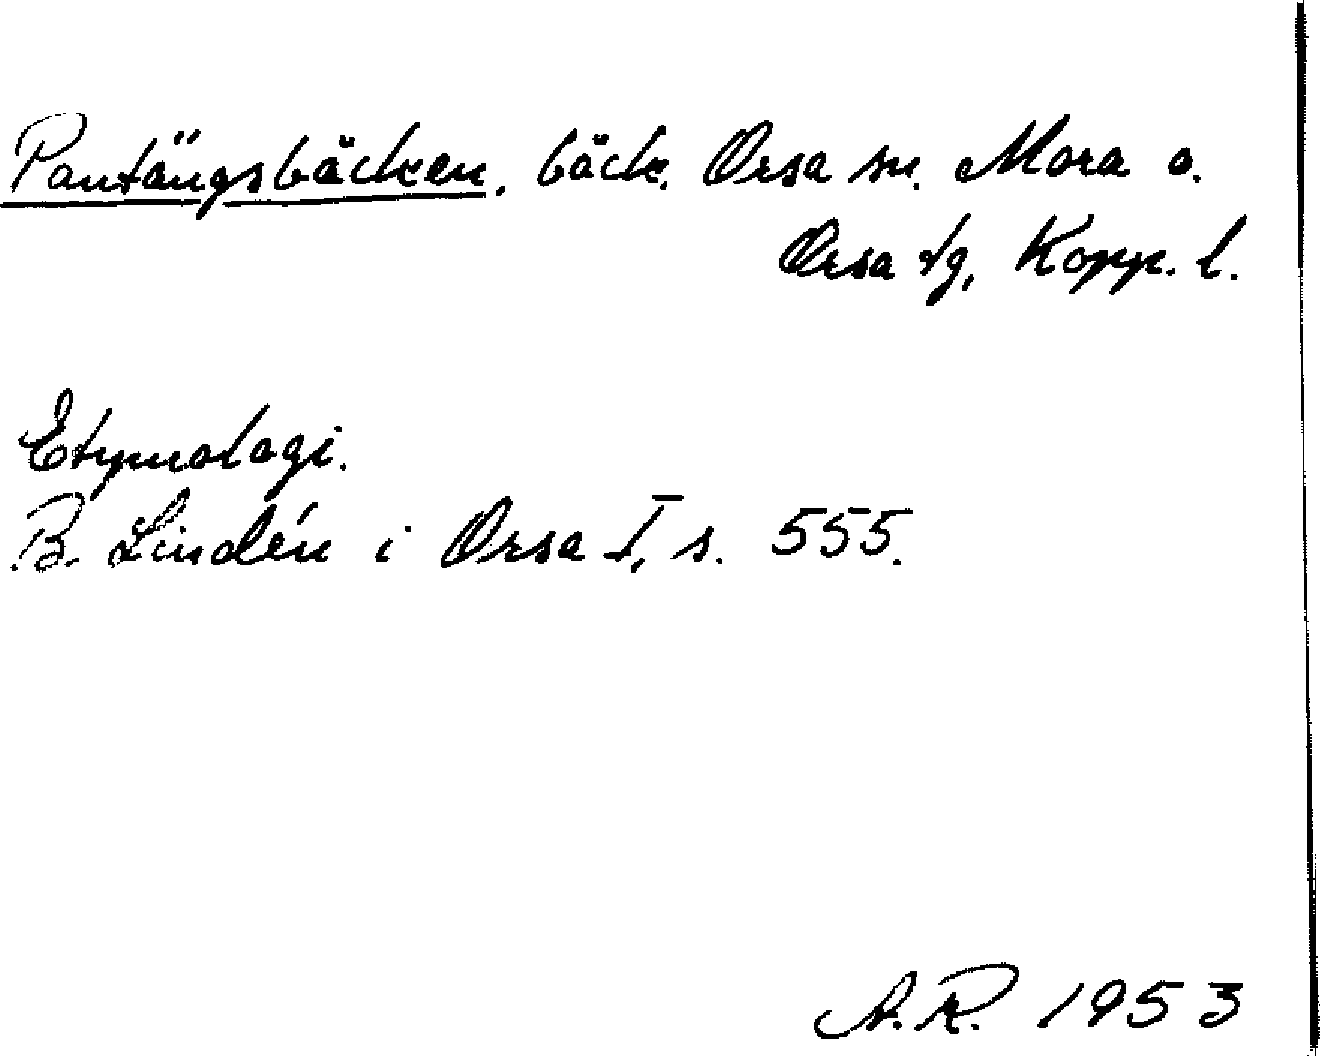 Pantängsbäcken, bäck, Orsa sn. Mora o.
Orsa tg, Kopp. l.
Etymologi.
B. Lindén i Orsa I, s. 555.
A.R. 1953